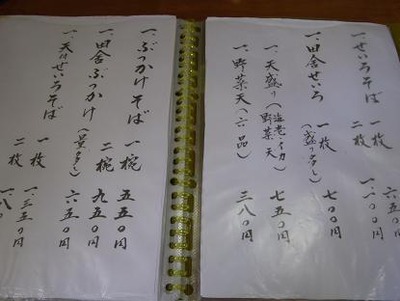 一、せいろそば 一枚 六五〇円
二枚 一、一〇〇円
一、田舎せいろ 一枚 七〇〇円
(盛り多し)
一、天盛り(海老・イカ 野菜天) 七五〇円
一、野菜天(六品) 三八〇円
一、ぶっかけそば 一椀 五五〇円
二椀 九五〇円
一、田舎ぶっかけ(量多し) 六五〇円
一、天付せいろそば 一枚 一、三五〇円
二枚 一、八〇